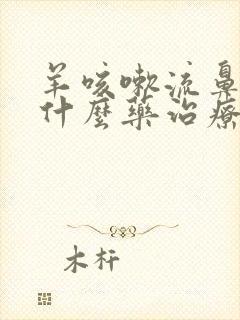 羊咳嗽流鼻
什麼藥治療
木杆